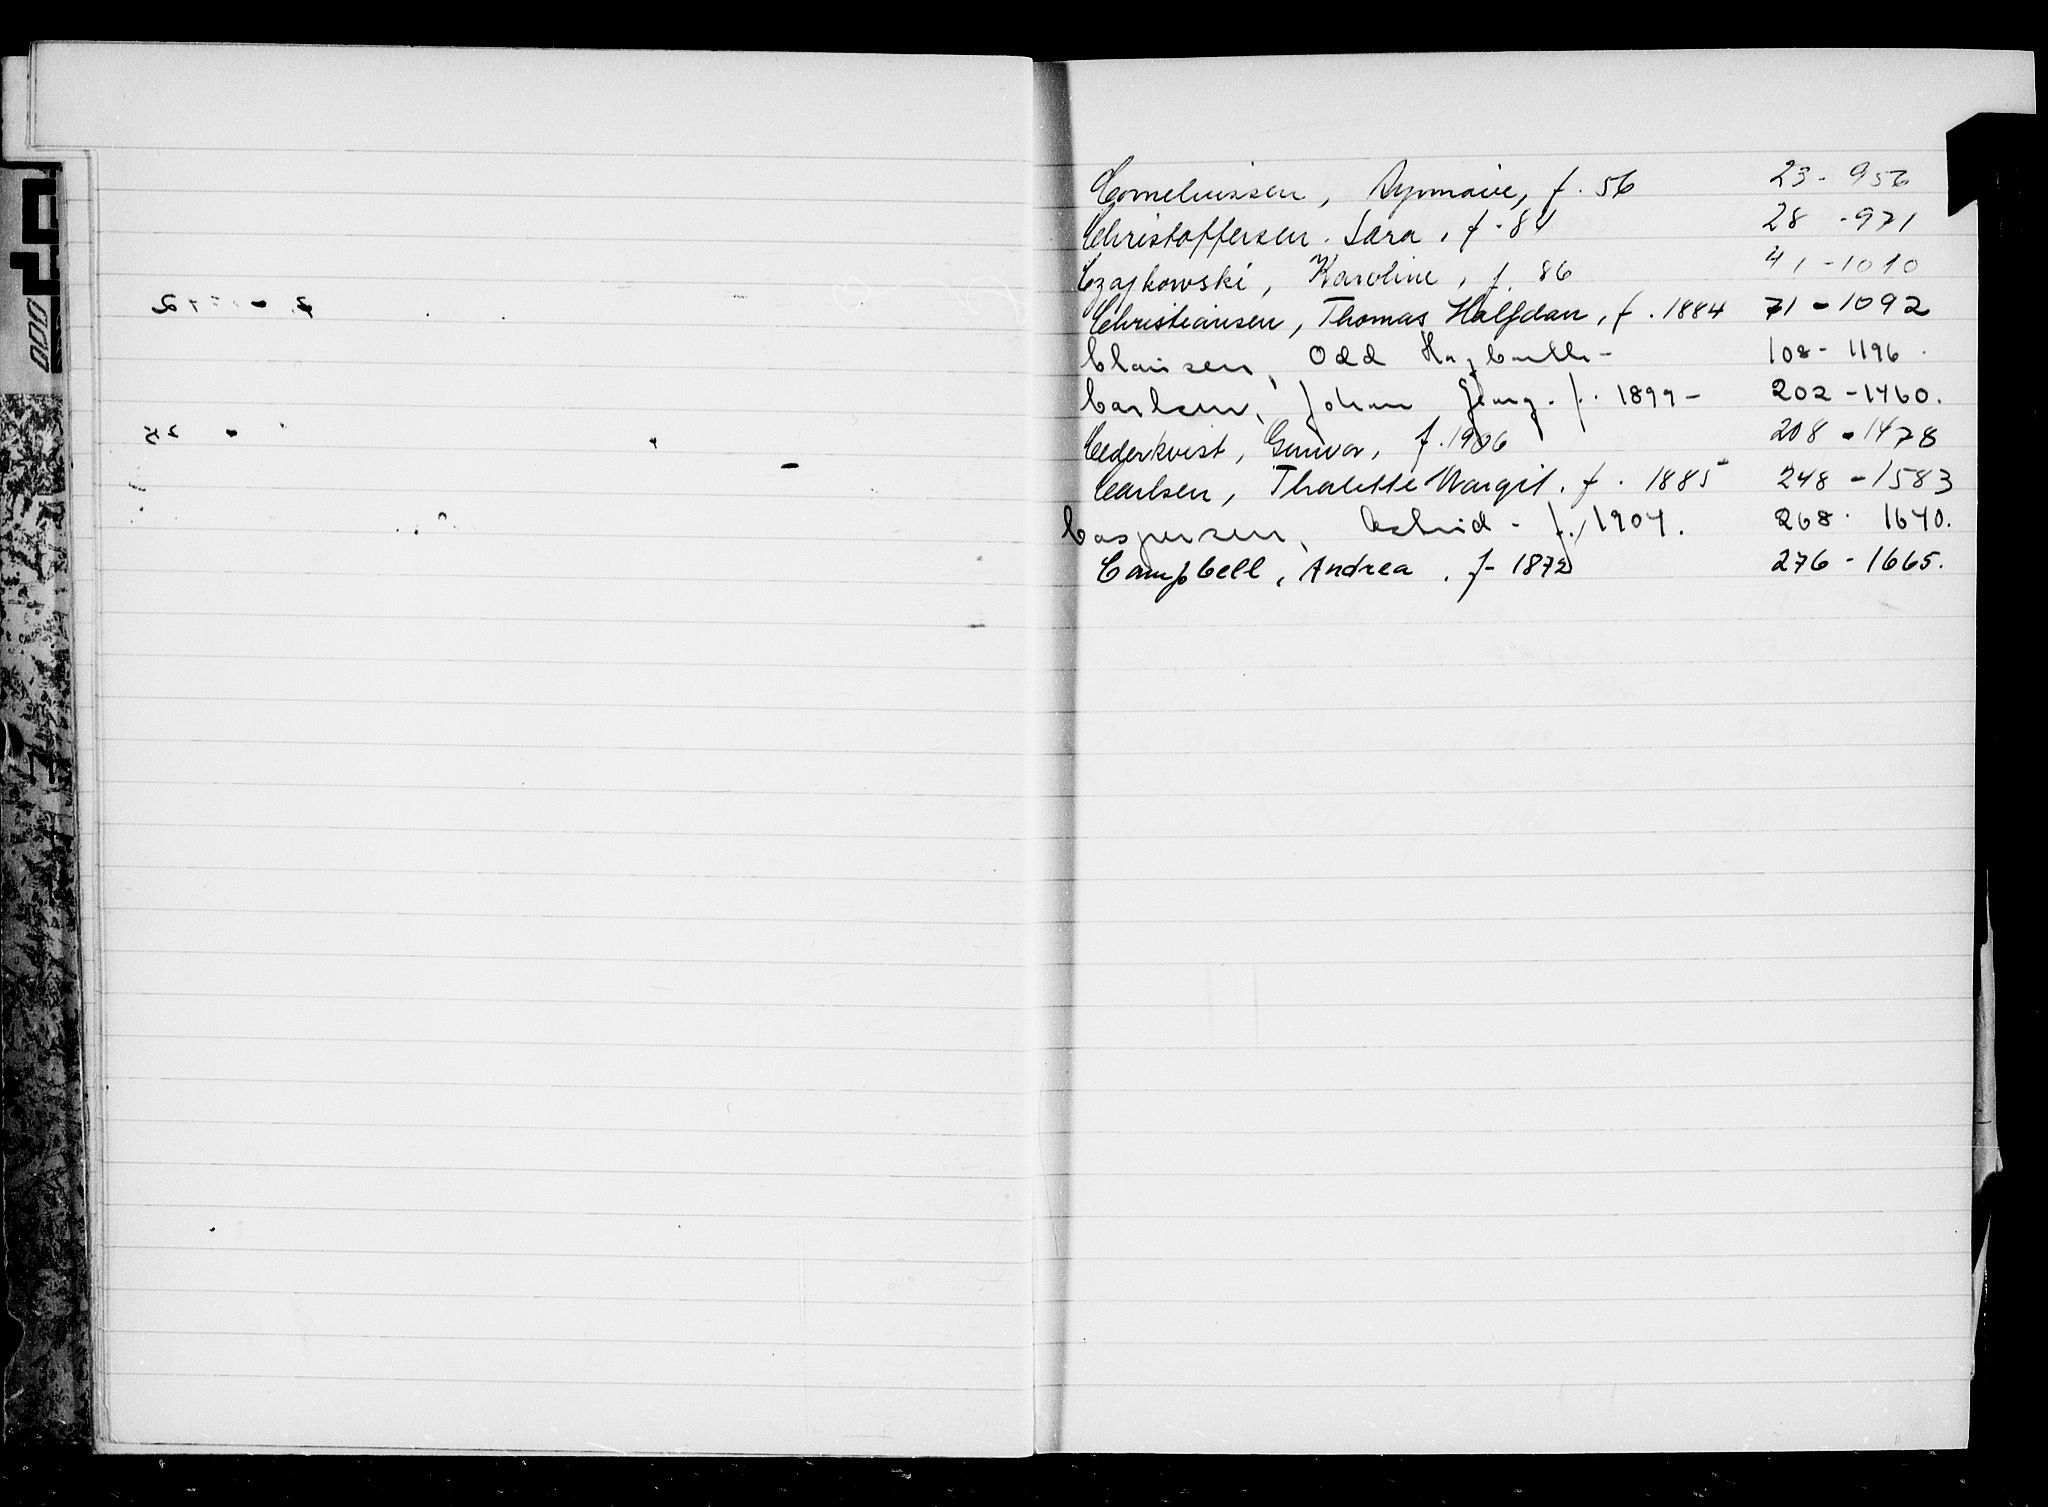 Corneliussen, Synnøve, f. 56 23 - 956
Christoffersen. Sara, f. 84 28 - 971
Czajkowski, Karoline, f. 86 41 - 1010
Christiansen, Thomas Halfdan, f. 1884 71 - 1092
Clausen, Odd 108 - 1196
Carlsen, Johan Georg. f. 1899 - 202 - 1460.
Cederkvist, Gunvor, f. 1906 208 - 1478
Carlsen, Margit. f. 1885 248 - 1583
Caspersen, Astrid - f. 1904. 268 - 1640.
Campbell, Andrea. f - 1872 276 - 1665.